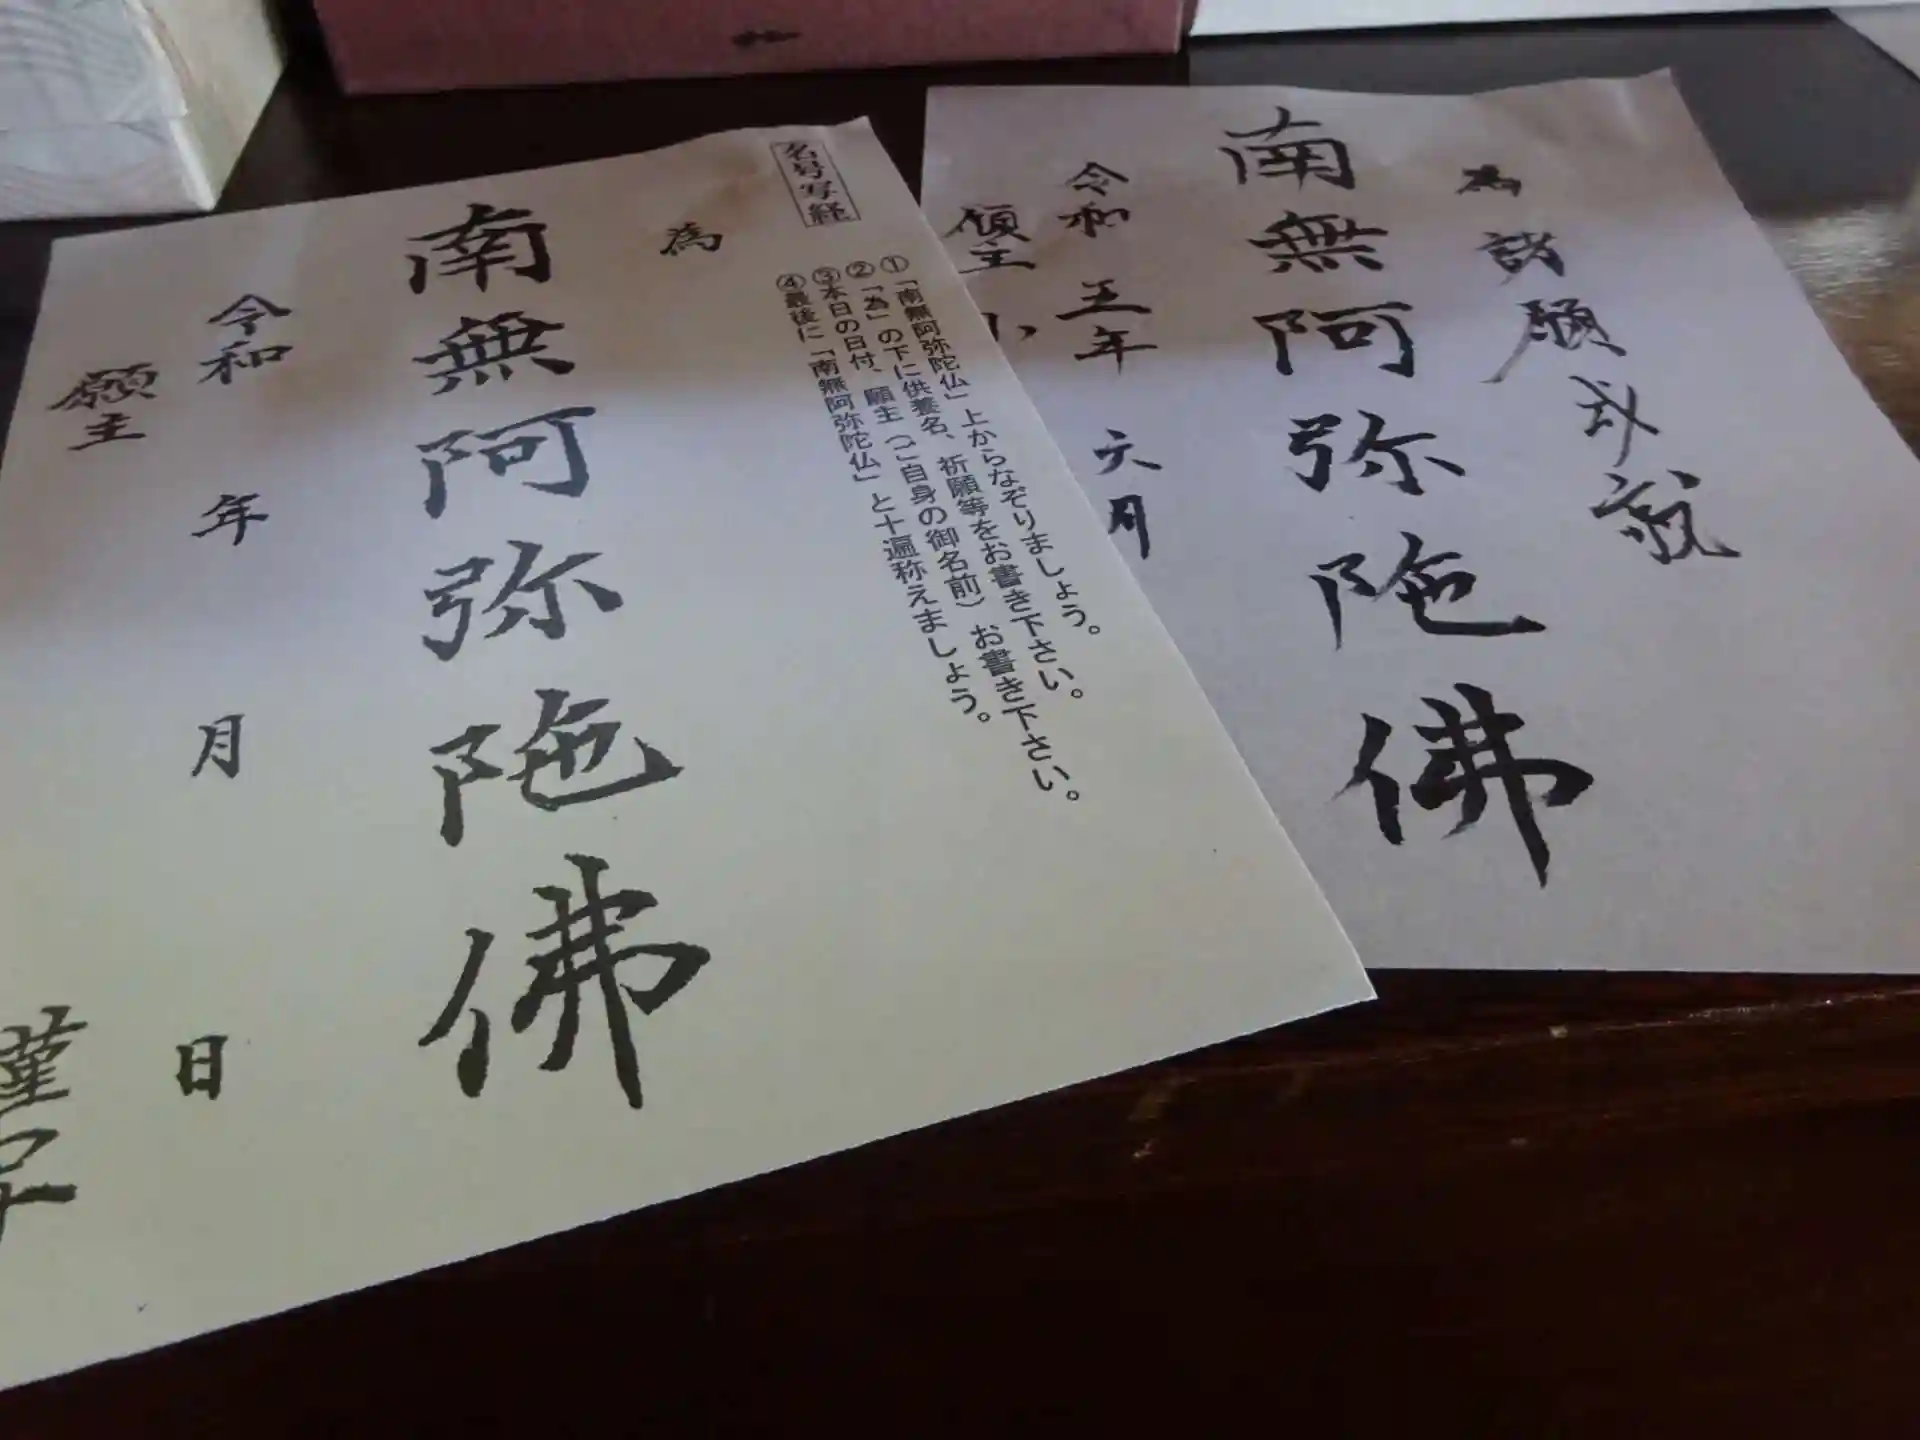 名号写経
①「南無阿弥陀仏」上からなぞりましょう。
②「為」の下に供養名、祈願等をお書き下さい。
③本日の日付、願主(ご自身の御名前)お書き下さい。
④最後に「南無阿弥陀仏」と十遍称えましょう。
為
南無阿弥陀佛
令和 年 月 日
願主 謹写
為 諸願成就
南無阿弥陀佛
令和 五年 六月
願主 小